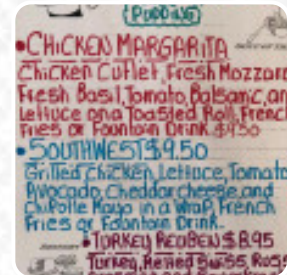 (PUDDING)
•CHICKEN MARGARITA
Chicken Cutlet, Fresh Mozzare
Fresh Basil, Tomato, Balsamic, an
Lettuce on a Toasted Roll, French
Fries or Fountain Drink. $9.50
•SOUTHWEST $9.50
Grilled Chicken, Lettuce, Tomato
Avocado, Cheddar cheese, and
Chipotle Mayo in a Wrap, French
Fries or Fountain Drink.
•TURKEY REUBEN $8.95
Turkey, Melted Swiss, Russ